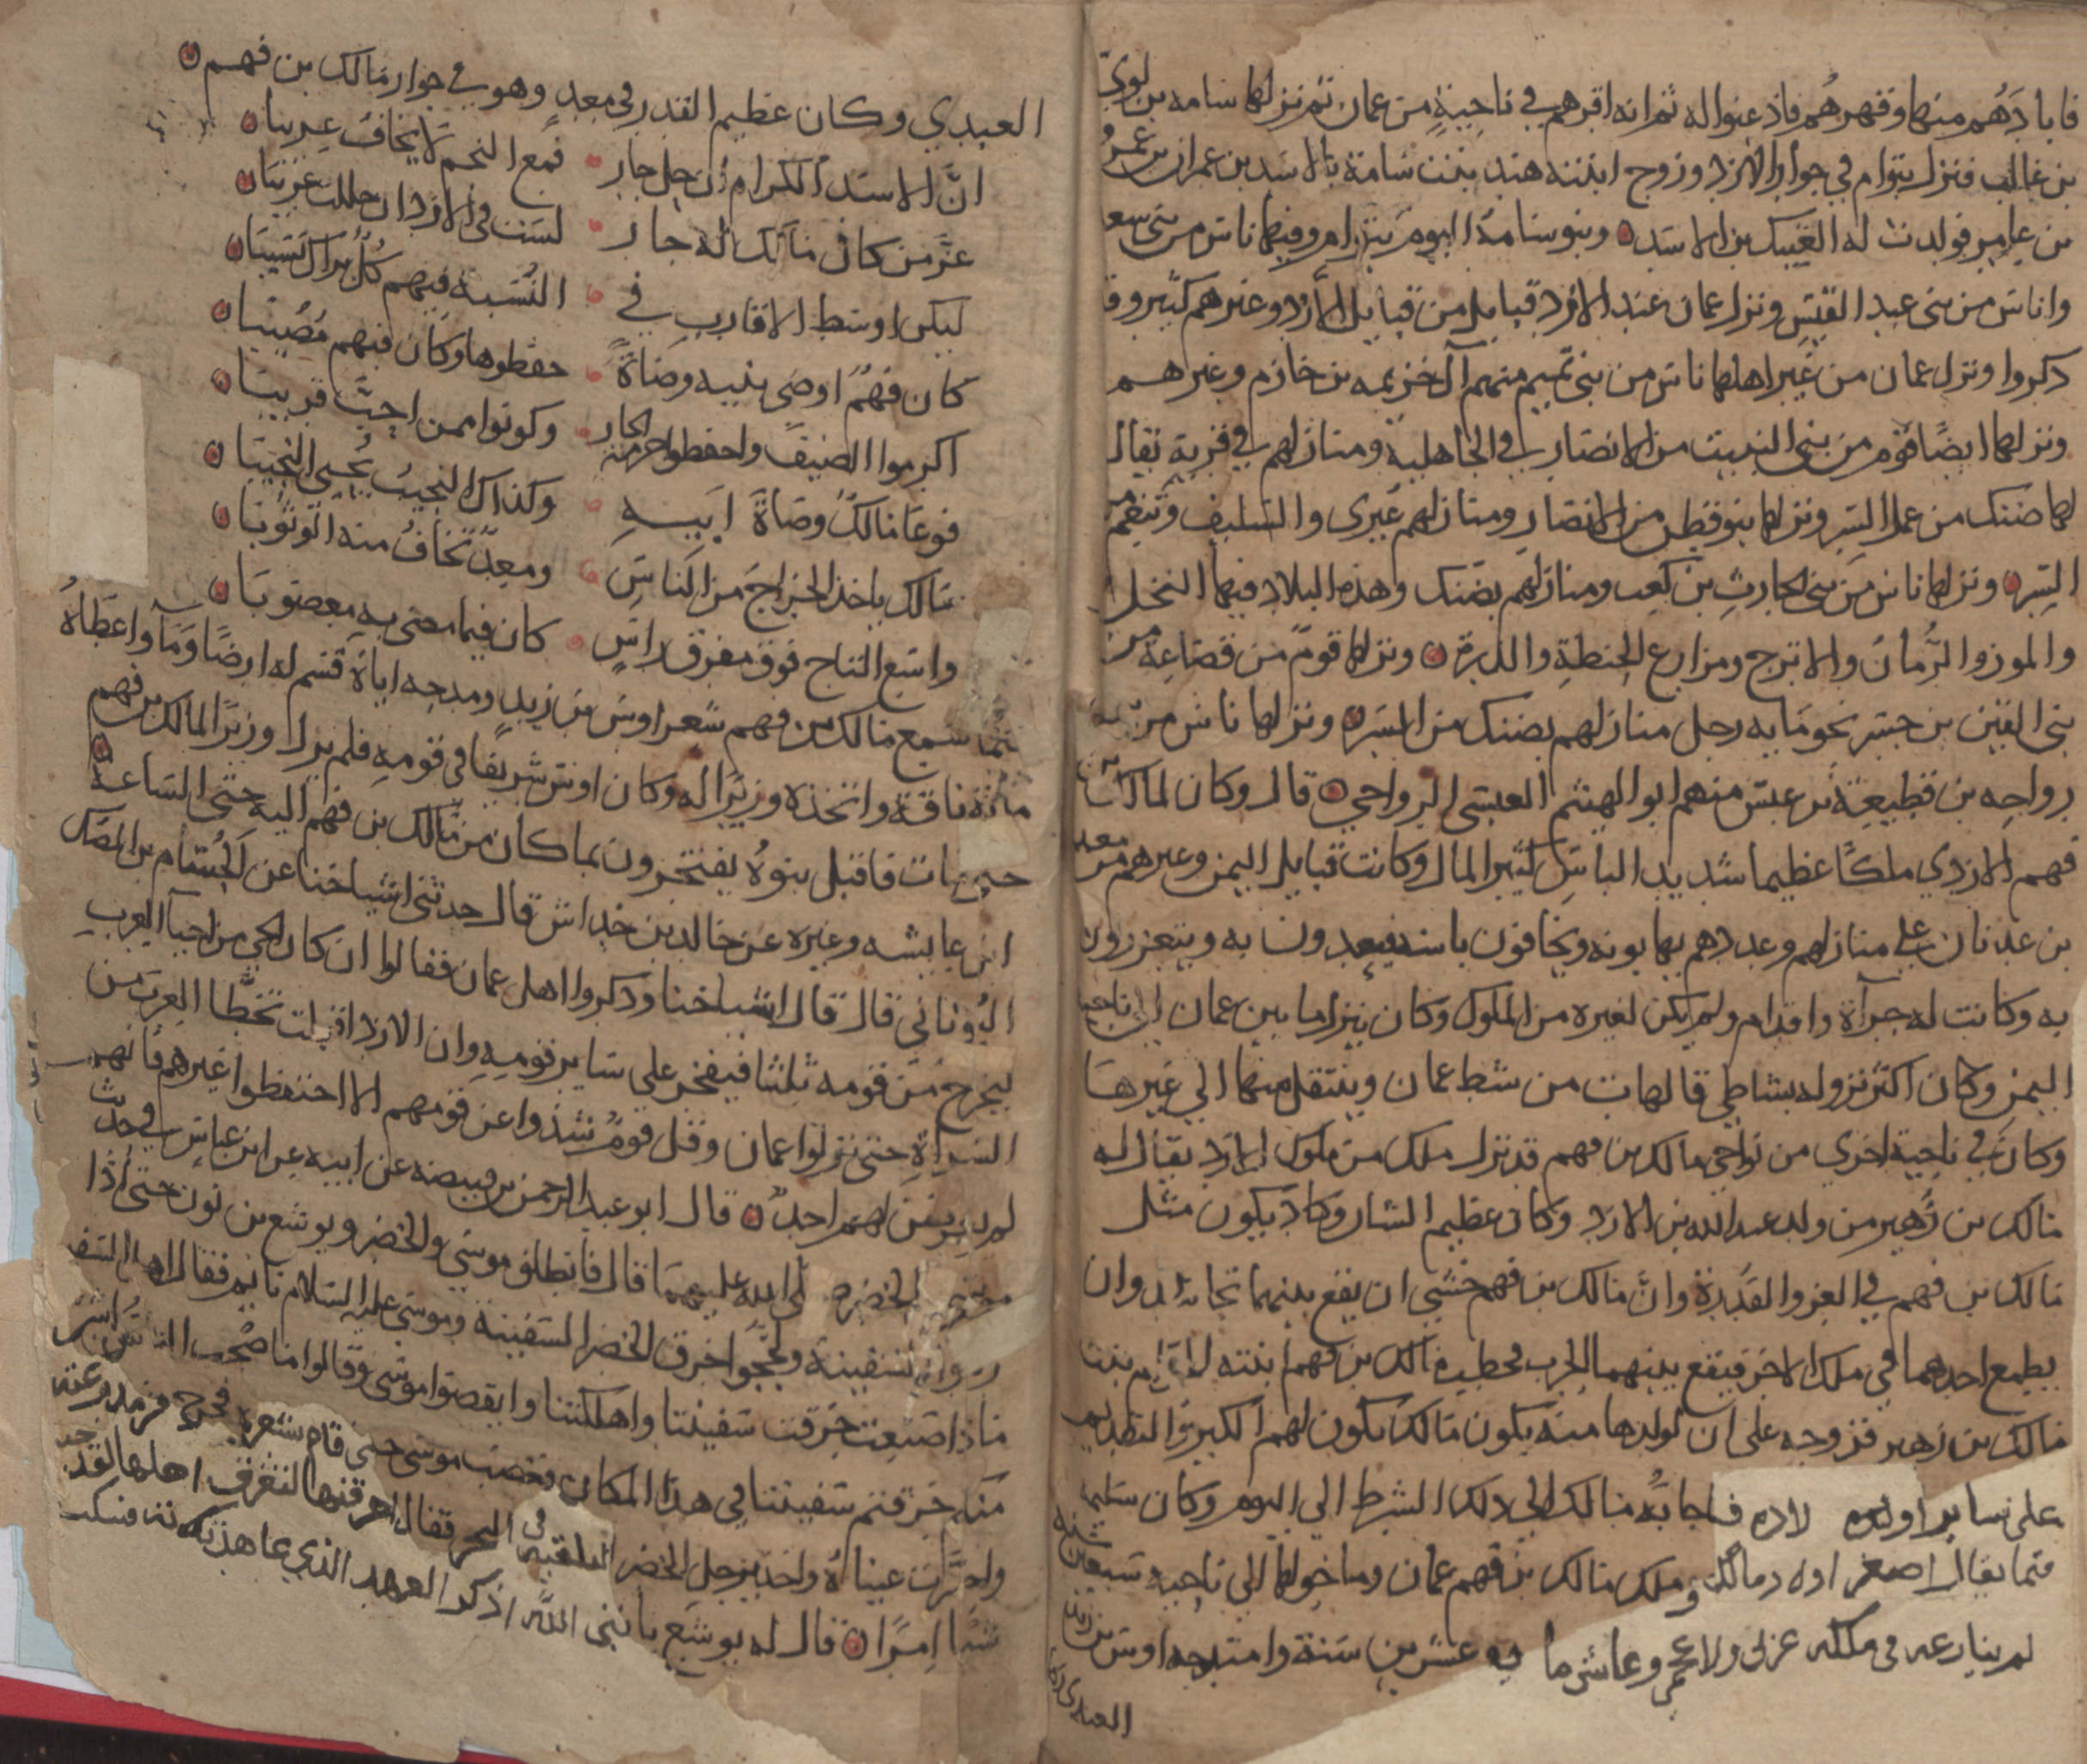 فابادهم منها وقهرهم فاذعنوا له ثم انه اقرهم في ناحية من عمان ثم نزلها سامه بن لوي
بن غالب فنزل بتوام في جوار الازد وزوج ابنته هند بنت سامة بالاسد بن عمران بن عمرو
بن عامر فولدت له العتيك بن الاسد وبنو سامة اليوم بتوام وفيها ناس من بني سعد
واناس من بني عبد القيس ونزل عمان عند الازد قبايل من قبايل الازد وغيرهم كثير وقد
ذكروا ونزل عمان من غير اهلها ناس من بني تميم منهم آل خزيمه بن خازم وغيرهم
ونزلها ايضا قوم من بني النبيت من الانصار في الجاهلية ومنازلهم في قرية يقال
لها ضنك من عمل السر ونزلها بنو قطن من الانصار ومنازلهم عبرى والسليف وتنعم من
السر ونزلها ناس من بني الحارث بن كعب ومنازلهم بضنك وهذه البلاد فيها النخل
والموز والرمان والاترج ومزارع الحنطة والذرة ونزلها قوم من قضاعة من
بني القين بن جسر نحو مايه رجل منازلهم بضنك من السر ونزلها ناس من بني
رواحه بن قطيعة بن عبس منهم ابو الهيثم العبسي الرواحي قال وكان لمالك بن
فهم الازدي ملكا عظيما شديد الباس كثير المال وكانت قبايل اليمن وغيرهم من معد
بن عدنان على منازلهم وعددهم يهابونه ويخافون باسه فيعدون به ويتعززون
به وكانت له جرآة واقدام ولم يكن لغيره من الملوك وكان ينزل ما بين عمان الى ناحية
اليمن وكان اكثر نزوله بشاطي قالهات من شط عمان وينتقل منها الي غيرها
وكان في ناحية اخري من نواحي مالك بن فهم قد نزل ملك من ملوك الازد يقال له
مالك بن زهير من ولد عبد الله بن الازد وكان عظيم الشان وكاد يكون مثل
مالك بن فهم في العز والقدرة وان مالك بن فهم خشي ان يقع بينهما تحاسد وان
يطمع احدهما في ملك الاخر فيقع بينهما الحرب فخطب مالك بن فهم ابنته بنت
مالك بن زهير فزوجه على ان لولدها منه يكون مالك يكون لهم الكبر والتقديم
على ساير اولاده فاجابه مالك الى ذلك الشرط الي اليوم وكان سليمه
فيما يقال اصغر اولاد مالك وملك مالك بن فهم عمان وما حولها الى ناحية سبعين سنة
لم ينازعه في ملكه عربي ولا عجمي وعاش مايه عشرين سنة وامتدحه اوس بن زيد
العبدي
العبدي وكان عظيم القدر في معد وهو في جوار مالك بن فهم
ان الاسد الكرام ان حل جار فمع النجم لا يخاف عريبا
عز من كان مالك له جار لست في الازد ان حللت غريبا
ليكن اوسط الاقارب في النسبة فيهم كل يراك نسيبا
كان فهم اوصى بنيه وصاة حفظوها وكان فيهم مصيبا
اكرموا الضيف واحفظوا حرمة الجار وكونوا ممن احب قريبا
فوعا مالك وصاة ابيه وكذاك النجيب يحيي النجيبا
مالك ياخذ الخراج من الناس ومعد تخاف منه الوثوبا
واسع التاج فوق مفرق راس كان فيما مضى به معصوبا
فلما سمع مالك بن فهم شعر اوس بن زيد ومدحه اياه قسم له ارضا وماء واعطاه
مائة ناقة واتخذه وزيرا له وكان اوس شريفا في قومه فلم يزل وزيرا لمالك بن فهم
حين مات فاقبل بنوه يفتخرون بما كان من مالك بن فهم اليه حتى الساعة
ابن عايشه وغيره عن خالد بن خداش قال حدثني اشياخنا عن
قال قال اشياخنا وذكروا اهل عمان فقالوا ان كان الحي من احياء العرب
ليخرج من قومه ثلثا فيفخر على ساير قومه وان الازد اقبلت تخطا العرب من
السراة حتى نزلوا عمان وقل قوم شذوا عن قومهم الا احتفظوا غيرهم فانهم
لم يرض لهم احد قال ابو عبد الرحمن بن قبيصه عن ابيه عن ابن عباس في حديث
موسى والخضر صلى الله عليهما قال فانطلق موسى والخضر ويوشع بن نون حتى اذا
ركبوا السفينة ولججوا خرق الخضر السفينة وموسى عليه السلام نايم فقال اهل السفينة
ماذا صنعت خرقت سفينتنا واهلكتنا وايقضوا موسى وقالوا ما صحب الناس اشر
منكم خرقتم سفينتنا في هذا المكان فغضب موسى حتى قام شعره فخرج من مدرعته
واحمرت عيناه واخذ برجل الخضر ليلقيه في البحر فقال اخرقتها لتغرق اهلها لقد جئت
شيا امرا قال له يوشع يا نبي الله اذكر العهد الذي عاهدته